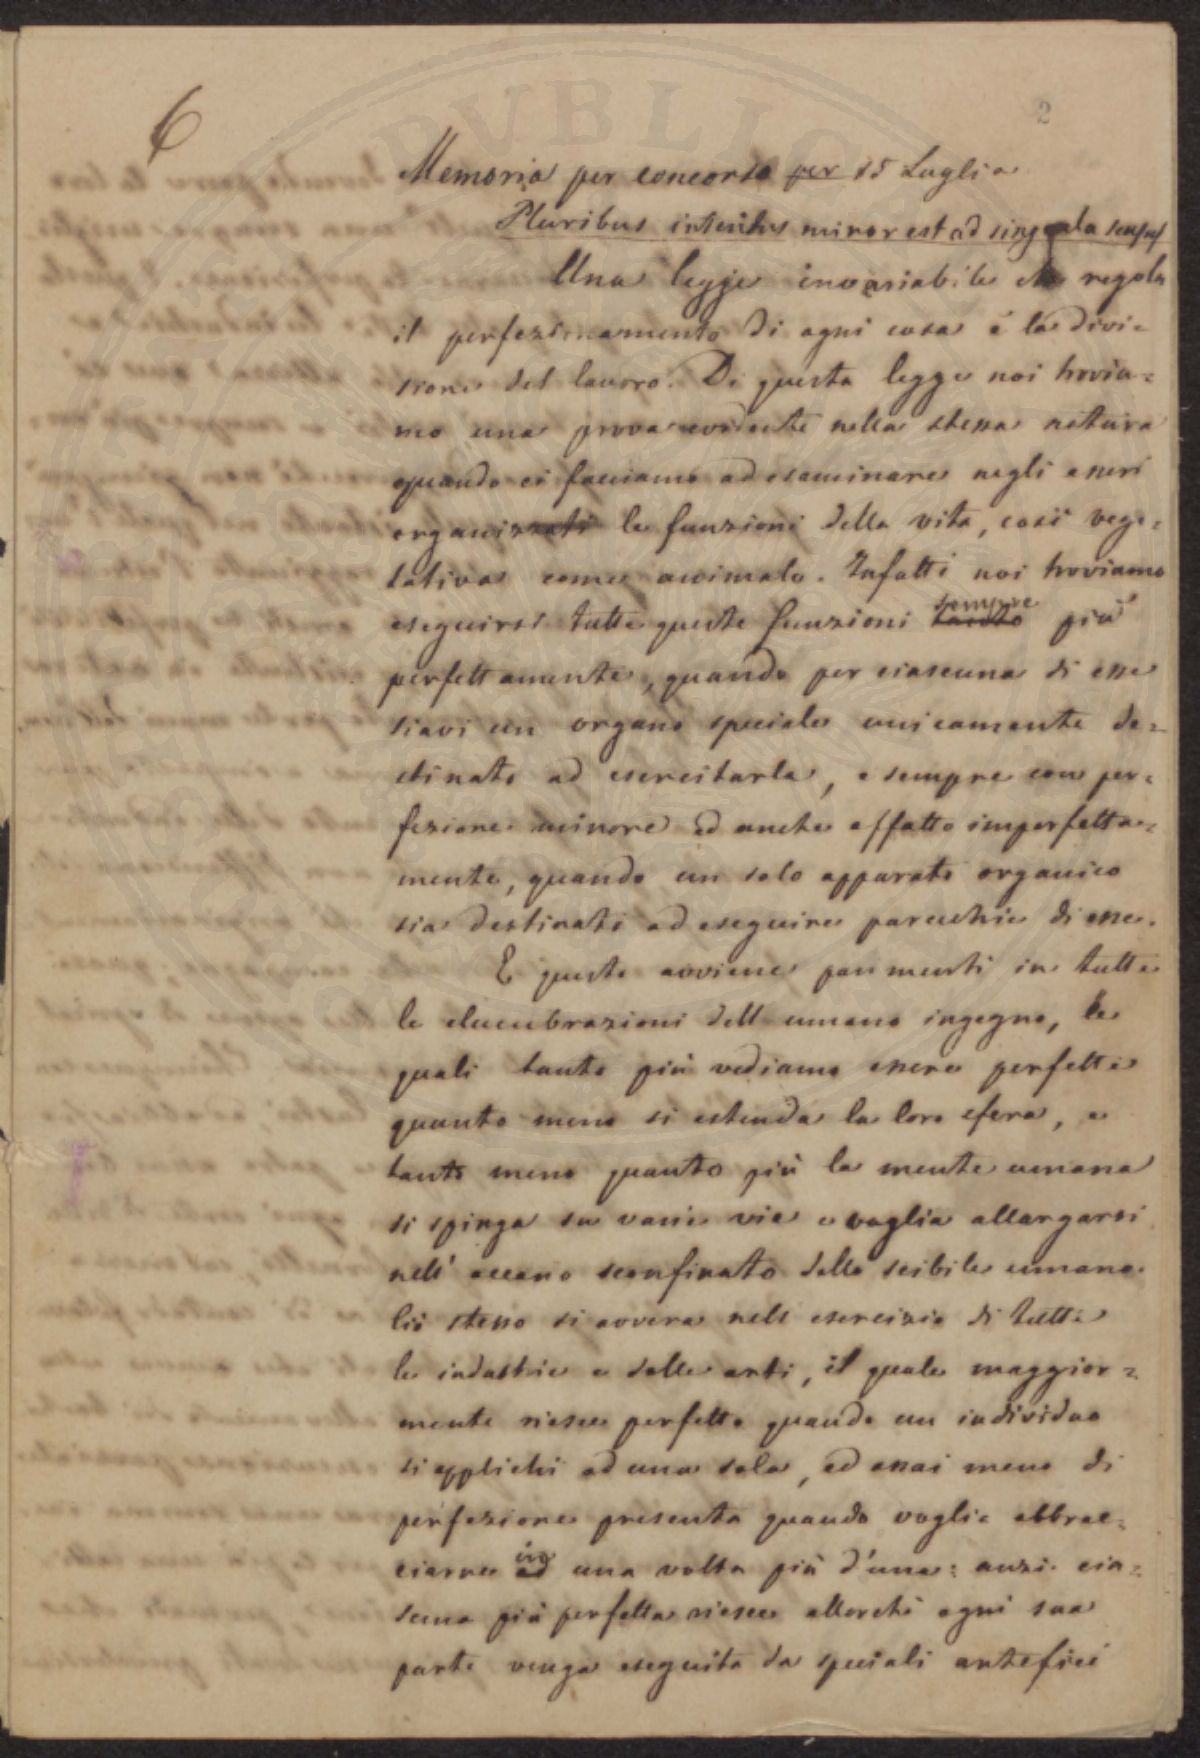 6
2
Memoria per concorso per 15 Luglio
Pluribus intentus minor est ad singula sensus
Una legge invariabile che regola
il perfezionamento di ogni cosa è la divi-
sione del lavoro. Di questa legge noi trovia=
mo una prova evidente nella stessa natura
quando ci facciamo ad esaminare negli esseri
organizzati le funzioni della vita, così vege=
tativa come animale. Infatti noi troviamo
eseguirsi tutte queste funzioni sempre più
perfettamente, quando per ciascuna di esse
siavi un organo speciale unicamente de=
stinato ad esercitarla, e sempre con per=
fezione minore ed anche affatto imperfetta=
mente, quando un solo apparato organico
sia destinato ad eseguire parecchie di esse.
E questo avviene parimenti in tutte
le elucubrazioni dell umano ingegno, le
quali tanto più vediamo essere perfette
quanto meno si estenda la loro sfera, e
tanto meno quanto più la mente umana
si spinga su varie vie e voglia allargarsi
nell' oceano sconfinato dello scibile umano.
Ciò stesso si avvera nell esercizio di tutte
le industrie e delle arti, il quale maggior=
mente riesce perfetto quando un individuo
si applichi ad una sola, ed assai meno di
perfezione presenta quando voglia abbrac=
ciarne in una volta più d'una: anzi cia=
scuna più perfetta riesce allorchè ogni sua
parte venga eseguita da speciali artefici
PVBLICA